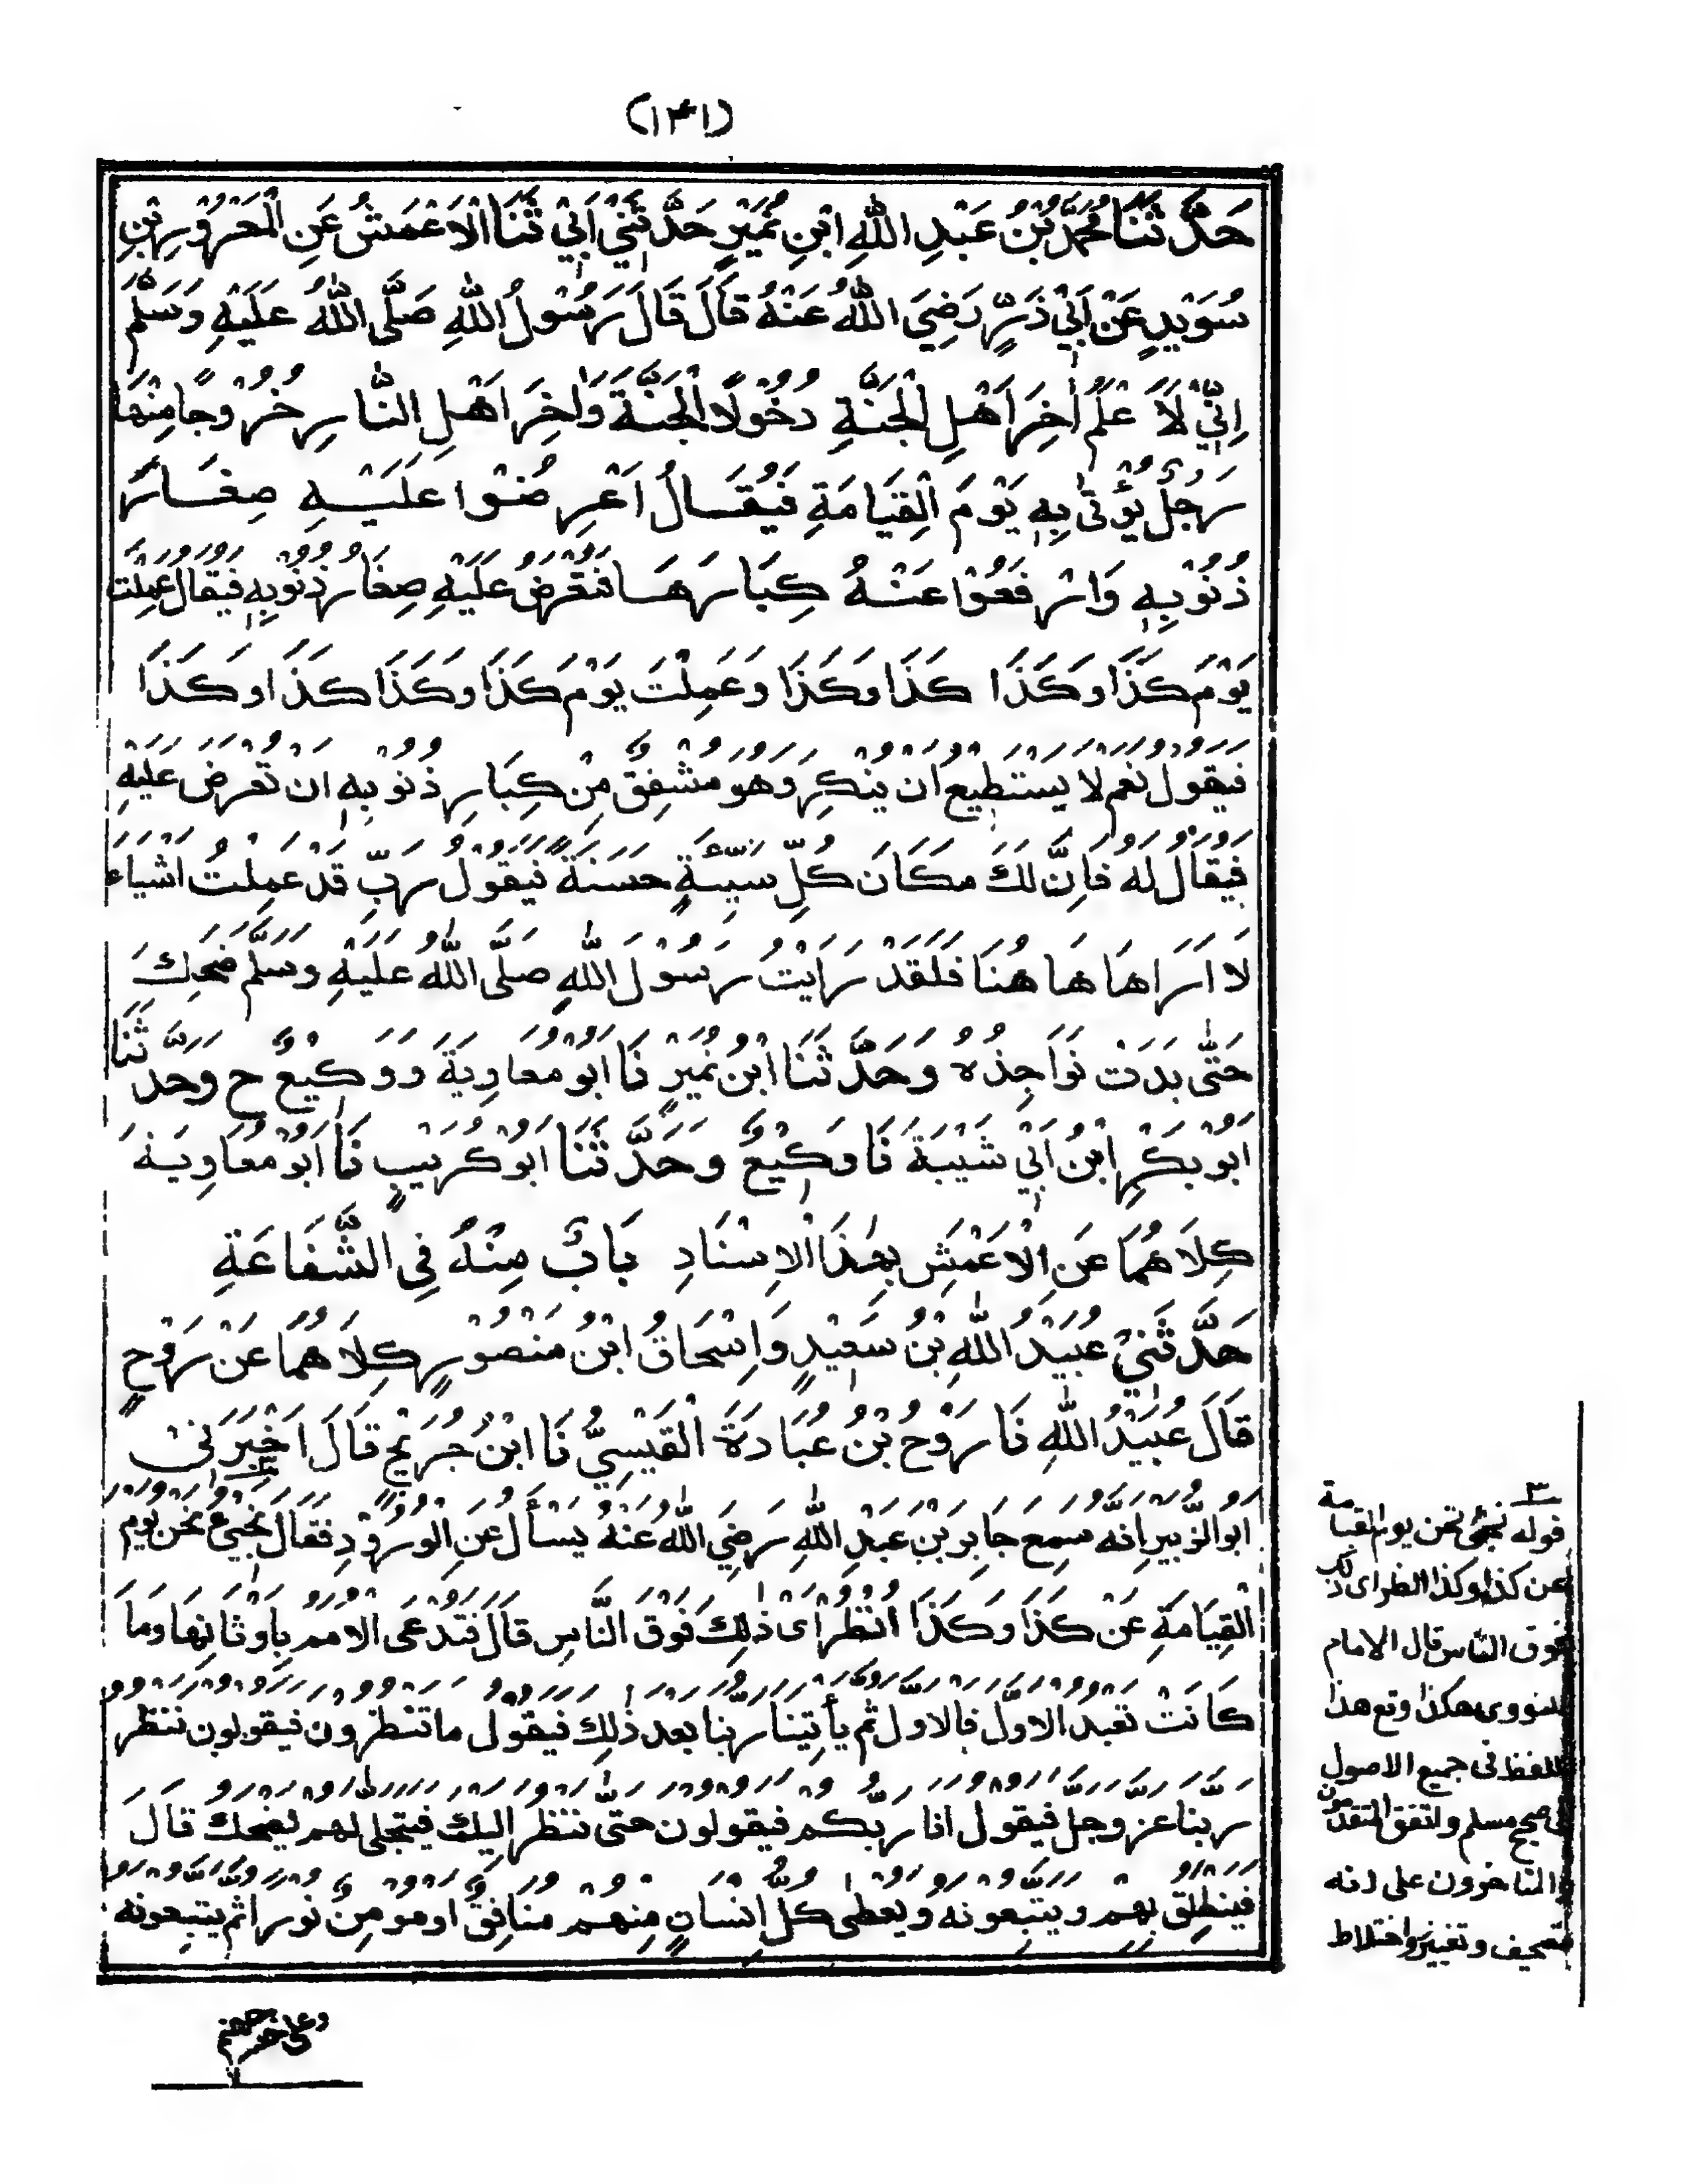 (١٣١)
حَدَّثَنَا مُحَمَّدُ بْنُ عَبْدِ اللّٰهِ ابْنِ نُمَيْرٍ حَدَّثَنِيْ اَبِيْ ثَنَا الْاَعْمَشُ عَنِ الْمَعْرُوْرِ بْنِ
سُوَيْدٍ عَنْ اَبِيْ ذَرٍّ رَضِيَ اللّٰهُ عَنْهُ قَالَ قَالَ رَسُوْلُ اللّٰهِ صَلَّى اللّٰهُ عَلَيْهِ وَسَلَّمَ
اِنِّيْ لَاَعْلَمُ اٰخِرَ اَهْلِ الْجَنَّةِ دُخُوْلًا الْجَنَّةَ وَاٰخِرَ اَهْلِ النَّارِ خُرُوْجًا مِنْهَا
رَجُلٌ يُؤْتٰى بِهٖ يَوْمَ الْقِيَامَةِ فَيُقَالُ اَعْرِضُوْا عَلَيْهِ صِغَارَ
ذُنُوْبِهٖ وَارْفَعُوْا عَنْهُ كِبَارَهَا فَتُعْرَضُ عَلَيْهِ صِغَارُ ذُنُوْبِهٖ فَيُقَالُ عَمِلْتَ
يَوْمَ كَذَا وَكَذَا كَذَا وَكَذَا وَعَمِلْتَ يَوْمَ كَذَا وَكَذَا كَذَا وَكَذَا
فَيَقُوْلُ نَعَمْ لَا يَسْتَطِيْعُ اَنْ يُنْكِرَ وَهُوَ مُشْفِقٌ مِنْ كِبَارِ ذُنُوْبِهٖ اَنْ تُعْرَضَ عَلَيْهِ
فَيُقَالُ لَهُ فَاِنَّ لَكَ مَكَانَ كُلِّ سَيِّئَةٍ حَسَنَةً فَيَقُوْلُ رَبِّ قَدْ عَمِلْتُ اَشْيَاءَ
لَا اَرَاهَا هَا هُنَا فَلَقَدْ رَاَيْتُ رَسُوْلَ اللّٰهِ صَلَّى اللّٰهُ عَلَيْهِ وَسَلَّمَ ضَحِكَ
حَتّٰى بَدَتْ نَوَاجِذُهُ وَحَدَّثَنَا ابْنُ نُمَيْرٍ نَا اَبُوْ مُعَاوِيَةَ وَوَكِيْعٌ ح وَحَدَّثَنَا
اَبُوْ بَكْرِ ابْنُ اَبِيْ شَيْبَةَ نَا وَكِيْعٌ وَحَدَّثَنَا اَبُوْ كُرَيْبٍ نَا اَبُوْ مُعَاوِيَةَ
كِلَاهُمَا عَنِ الْاَعْمَشِ بِهٰذَا الْاِسْنَادِ بَابٌ مِنْهُ فِى الشَّفَاعَةِ
حَدَّثَنِيْ عُبَيْدُ اللّٰهِ بْنُ سَعِيْدٍ وَاِسْحَاقُ ابْنُ مَنْصُوْرٍ كِلَاهُمَا عَنْ رَوْحٍ
قَالَ عُبَيْدُ اللّٰهِ نَا رَوْحُ بْنُ عُبَادَةَ الْقَيْسِيُّ نَا ابْنُ جُرَيْجٍ قَالَ اَخْبَرَنِىْ
اَبُو الزُّبَيْرِ اِنَّهُ سَمِعَ جَابِرَ بْنَ عَبْدِ اللّٰهِ رَضِيَ اللّٰهُ عَنْهُ يَسْأَلُ عَنِ الْوُرُوْدِ فَقَالَ نَجِيْءُ نَحْنُ يَوْمَ
الْقِيَامَةِ عَنْ كَذَا وَكَذَا اُنْظُرْ اَىْ ذٰلِكَ فَوْقَ النَّاسِ قَالَ فَتُدْعَى الْاُمَمُ بِاَوْثَانِهَا وَمَا
كَانَتْ تَعْبُدُ الْاَوَّلُ فَالْاَوَّلُ ثُمَّ يَأْتِيْنَا رَبُّنَا بَعْدَ ذٰلِكَ فَيَقُوْلُ مَا تَنْظُرُوْنَ فَيَقُوْلُوْنَ نَنْتَظِرُ
رَبَّنَا عَزَّ وَجَلَّ فَيَقُوْلُ اَنَا رَبُّكُمْ فَيَقُوْلُوْنَ حَتّٰى نَنْظُرَ اِلَيْكَ فَيَتَجَلّٰى لَهُمْ يَضْحَكُ قَالَ
فَيَنْطَلِقُ بِهِمْ وَيَتَّبِعُوْنَهُ وَيُعْطٰى كُلُّ اِنْسَانٍ مِنْهُمْ مُنَافِقٌ اَوْ مُؤْمِنٌ نُوْرًا ثُمَّ يَتَّبِعُوْنَهُ
٣
قوله نجئ نحن يوم القيامة
عن كذا وكذا انظر اى ذلك
فوق الناس قال الامام
النووى هكذا وقع هذا
اللفظ فى جميع الاصول
فى صحيح مسلم واتفق المتقدمون
والمتاخرون على انه
تصحيف وتغيير واختلاط